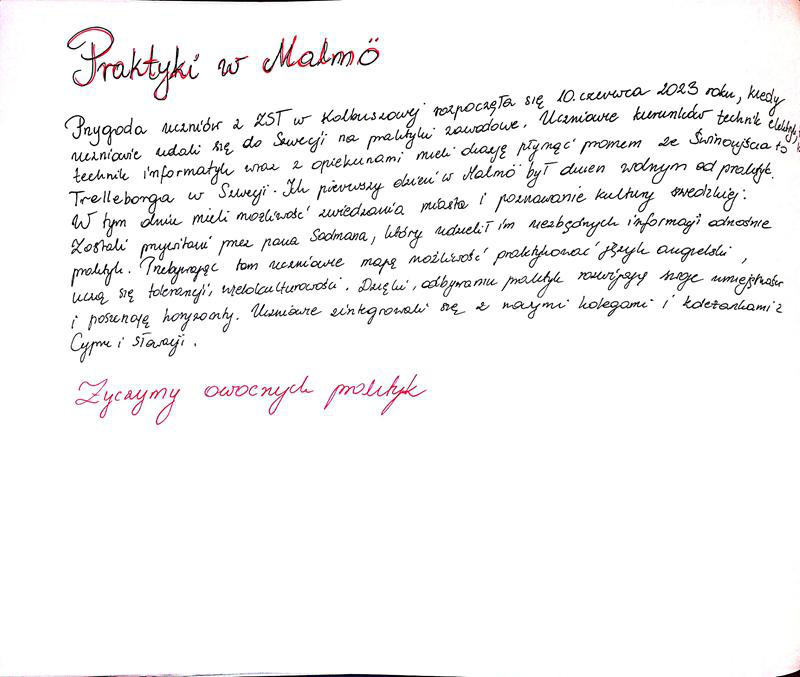 Praktyki w Malmö
Przygoda uczniów z ZST w Kolbuszowej rozpoczęła się 10. czerwca 2023 roku, kiedy
uczniowie udali się do Szwecji na praktyki zawodowe. Uczniowie kierunków technik elektryk,
technik informatyk wraz z opiekunami mieli okazję płynąć promem ze Świnoujścia to
Trelleborga w Szwecji. Ich pierwszy dzień w Malmö był dniem wolnym od praktyk.
W tym dniu mieli możliwość zwiedzania miasta i poznawanie kultury szwedzkiej.
Zostali przywitani przez pana Sadmana, który udzielił im niezbędnych informacji odnośnie
praktyk. Przebywając tam uczniowie mają możliwość praktykować język angielski,
uczą się tolerancji, wielokulturowości. Dzięki, odbywaniu praktyk rozwijają swoje umiejętności
i poszerzają horyzonty. Uczniowie zintegrowali się z naszymi kolegami i koleżankami z
Cypru i Słowacji.
Życzymy owocnych praktyk